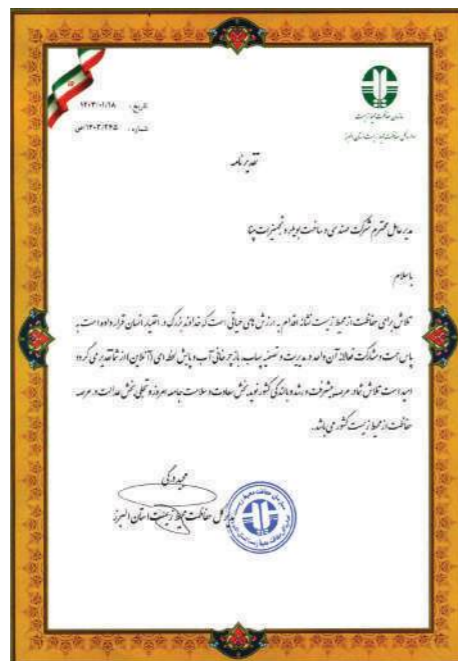 تاریخ: ۱۴۰۳/۰۱/۱۸
شماره: ۱۴۰۳/۲۴۵/ص
سازمان حفاظت محیط زیست
اداره کل حفاظت محیط زیست استان البرز
تقدیرنامه
مدیرعامل محترم شرکت مهندسی و ساخت بویلر و تجهیزات مپنا
باسلام
تلاش برای حفاظت از محیط زیست نشانه اهتمام به ارزش های حیاتی است که خداوند بزرگ در اختیار انسان قرار داده است به
پاس همت و مشارکت فعالانه آن واحد در مدیریت و تصفیه پساب، بازچرخانی آب و پایش لحظه ای (آنلاین) از شما تقدیر می گردد
امید است تلاش شما در عرصه پیشرفت و رشد و بالندگی کشور نوید بخش سعادت و سلامت جامعه امروز و تجلی بخش عدالت در عرصه
حفاظت از محیط زیست کشور می باشد.
مدیرکل حفاظت محیط زیست استان البرز